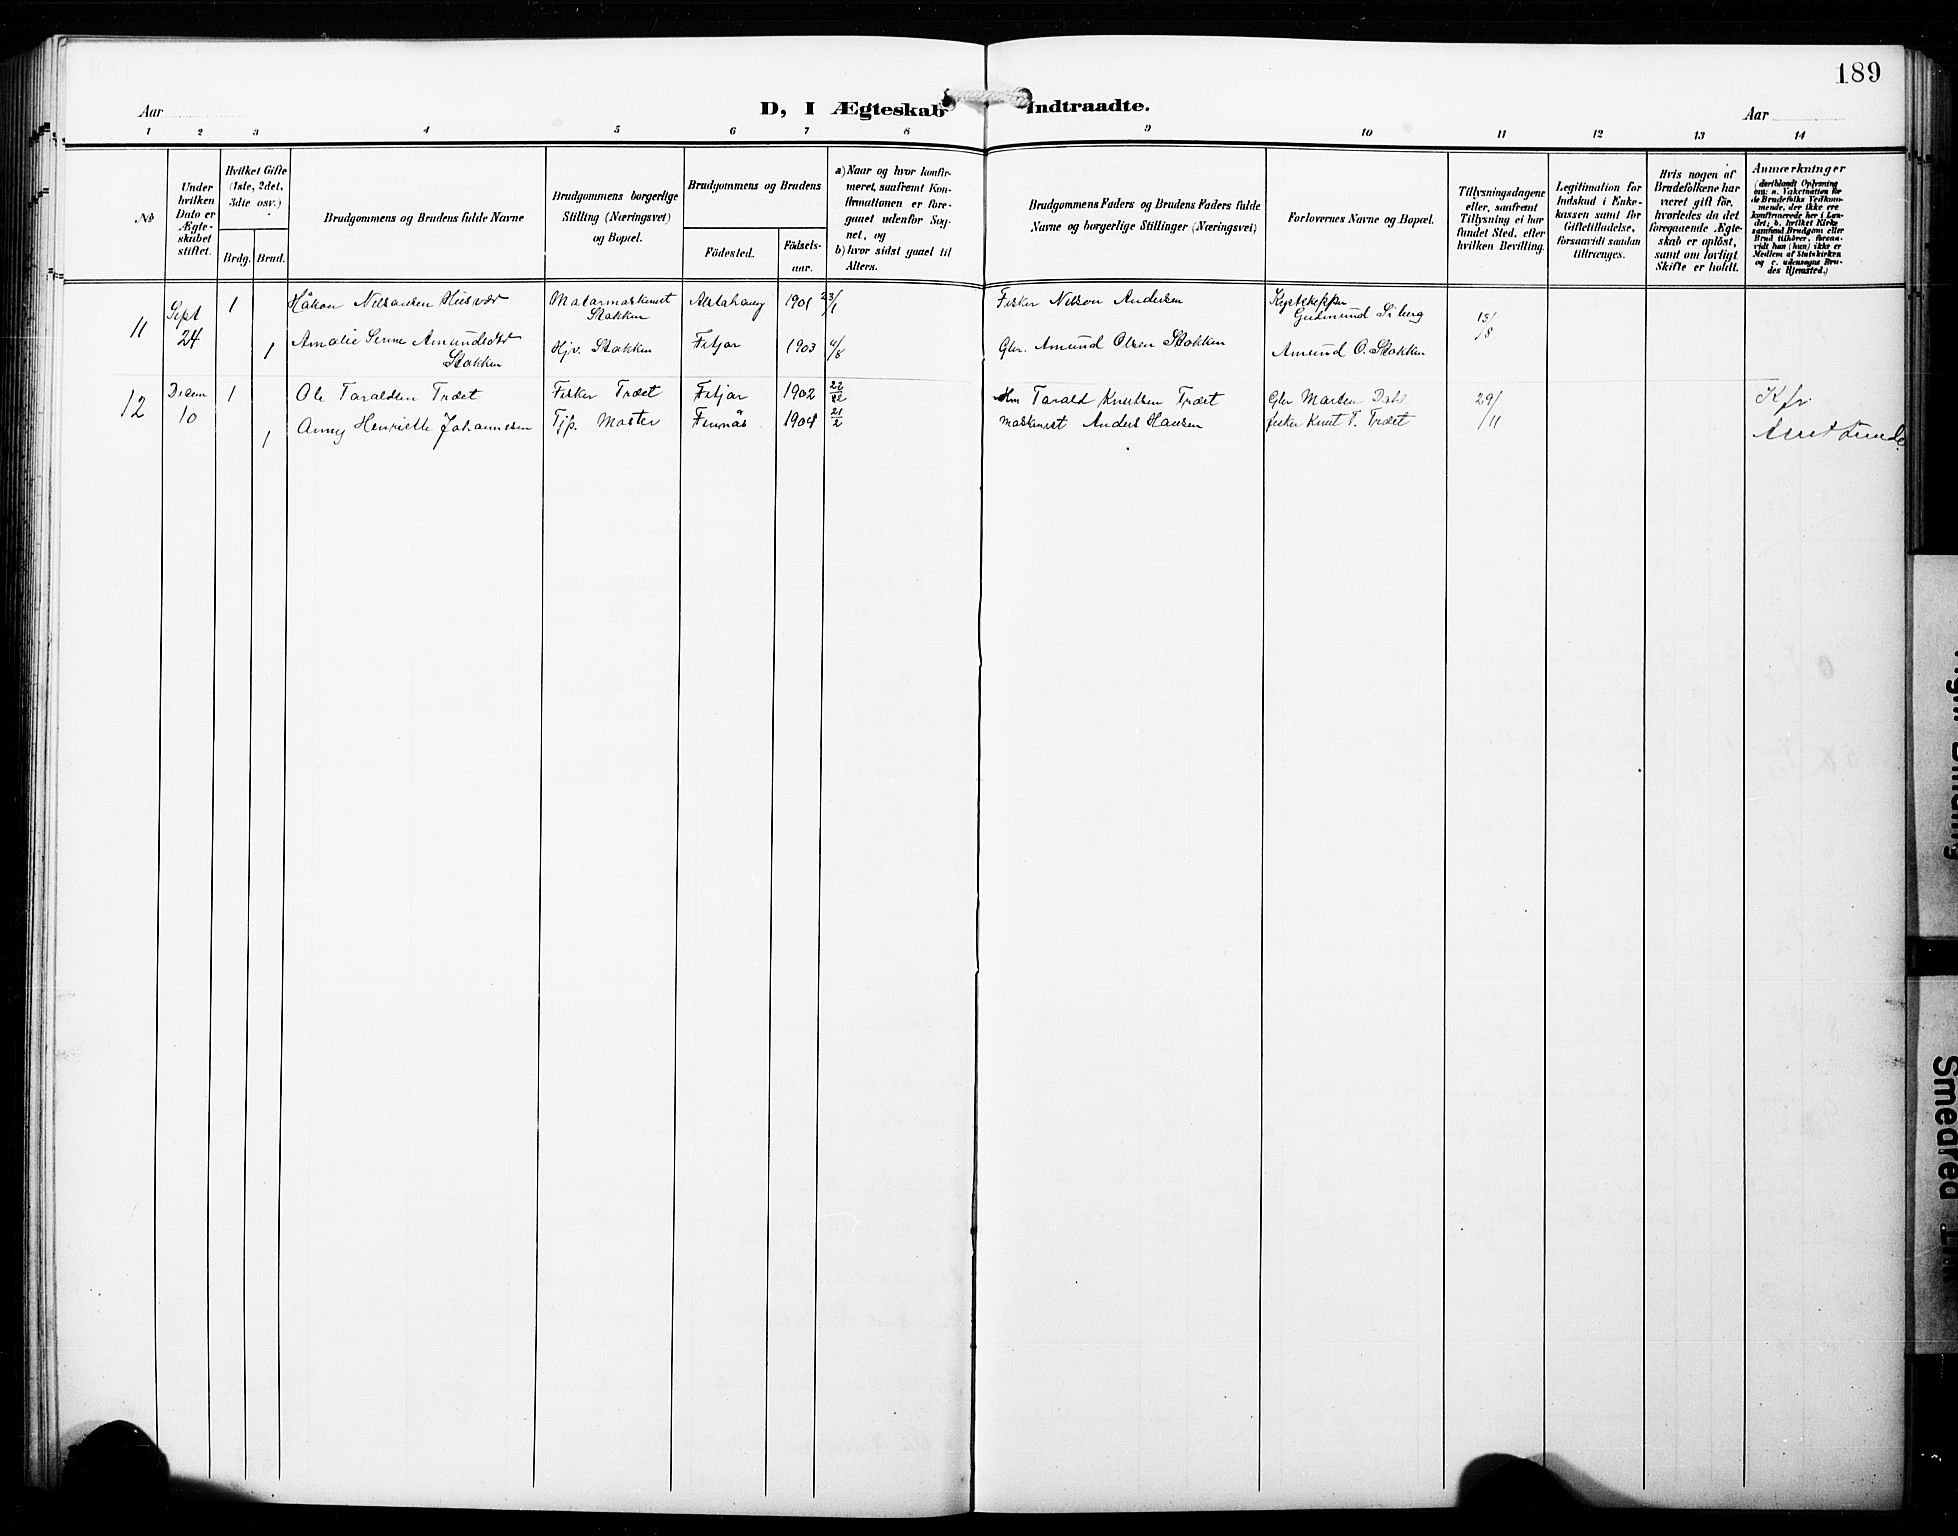 189
Aar
D, I Ægteskab Indtraadte.
Aar
1 2 3 4 5 6 7 8 9 10 11 12 13 14
№
Under hvilken Dato er Ægteskabet stiftet.
Hvilket Gifte (1ste, 2det, 3die osv.)
Brdg. Brud.
Brudgommens og Brudens fulde Navne
Brudgommens borgerlige Stilling (Næringsvei) og Bopæl.
Brudgommens og Brudens
Födested.
Födsels-aar.
a) Naar og hvor konfirmeret, saafremt Konfirmationen er foregaaet udenfor Sognet, og
b) hvor sidst gaaet til Alters.
Brudgommens Faders og Brudens Faders fulde Navne og borgerlige Stillinger (Næringsvei)
Forlovernes Navne og Bopæl.
Tillysningsdagene eller, saafremt Tillysning ei har fundet Sted, efter hvilken Bevilling.
Legitimation for Indskud i Enkekassen samt for Giftetilladelse, forsaavidt saadan tiltrænges.
Hvis nogen af Brudefolkene har været gift för, hvorledes da det foregaaende Ægteskab er oplöst, samt om lovligt Skifte er holdt.
Anmærkninger
(deriblandt Oplysning om: a. Vakcination for de Brudefolks Vedkommende, der ikke ere konfirmerede her i Landet; b. hvilket Kirkesamfund Brudgom eller Brud tilhörer, forsaavidt han (hun) ikke er Medlem af Statskirken og c. udensogns Brudes Hjemsted.)
11 Sept 24 1 Håkon Husvær Stokken 1901 23/1 Fisker Nilson Andersen
1 Amalie Serine Stokken Hjv. Stokken Fitjar 1903 4/8 Gbr. Amund Olsen Stokken Amund O. Stokken 15/8
12 Desem 10 1 Ole Taraldsen Træet Fisker Træet Fitjar 1902 22/12 Tarald Knutsen Træet Gbr Marten Dahl 29/11 Kfr.
1 Anny Henriette Johannesen Tjp. Moster Finnås 1904 21/2 maskinist Anders Hansen fisker Knut T. Træet
Smeared Ink